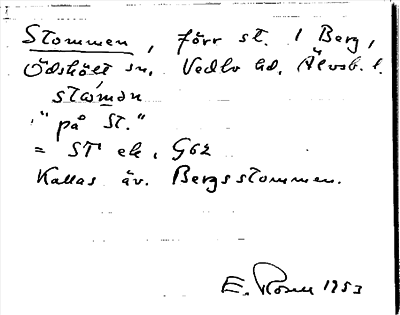 Stommen, förr st. / Berg,
Ödskölt sn, Vedbo hd, Älvsb. l.
ståmǝn
"på St."
= ST ek, G62
Kallas äv. Bergsstommen.
E. Rosell 1953